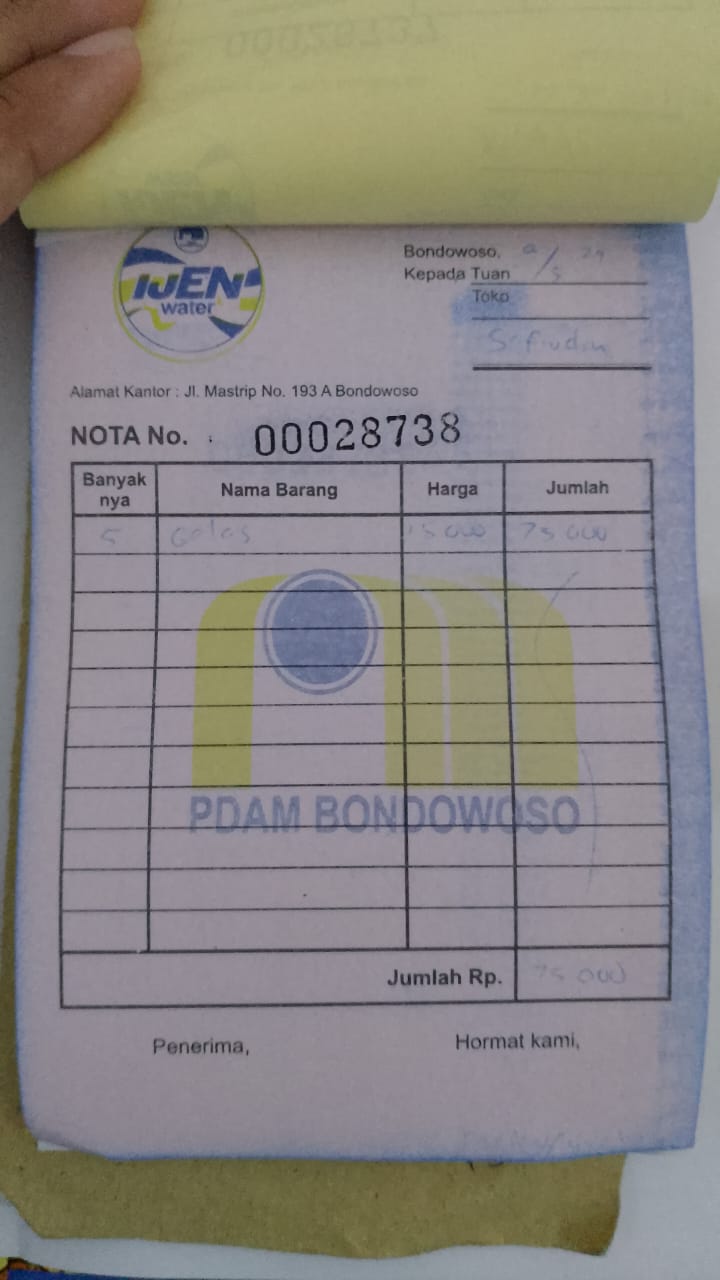 IJEN
water
Bondowoso, 9/5 24
Kepada Tuan
Toko
Alamat Kantor : Jl. Mastrip No. 193 A Bondowoso
NOTA No. : 00028738
Banyak nya Nama Barang Harga Jumlah
5 Gelas 15 000 75 000
PDAM BONDOWOSO
Jumlah Rp. 75 000
Penerima, Hormat kami,